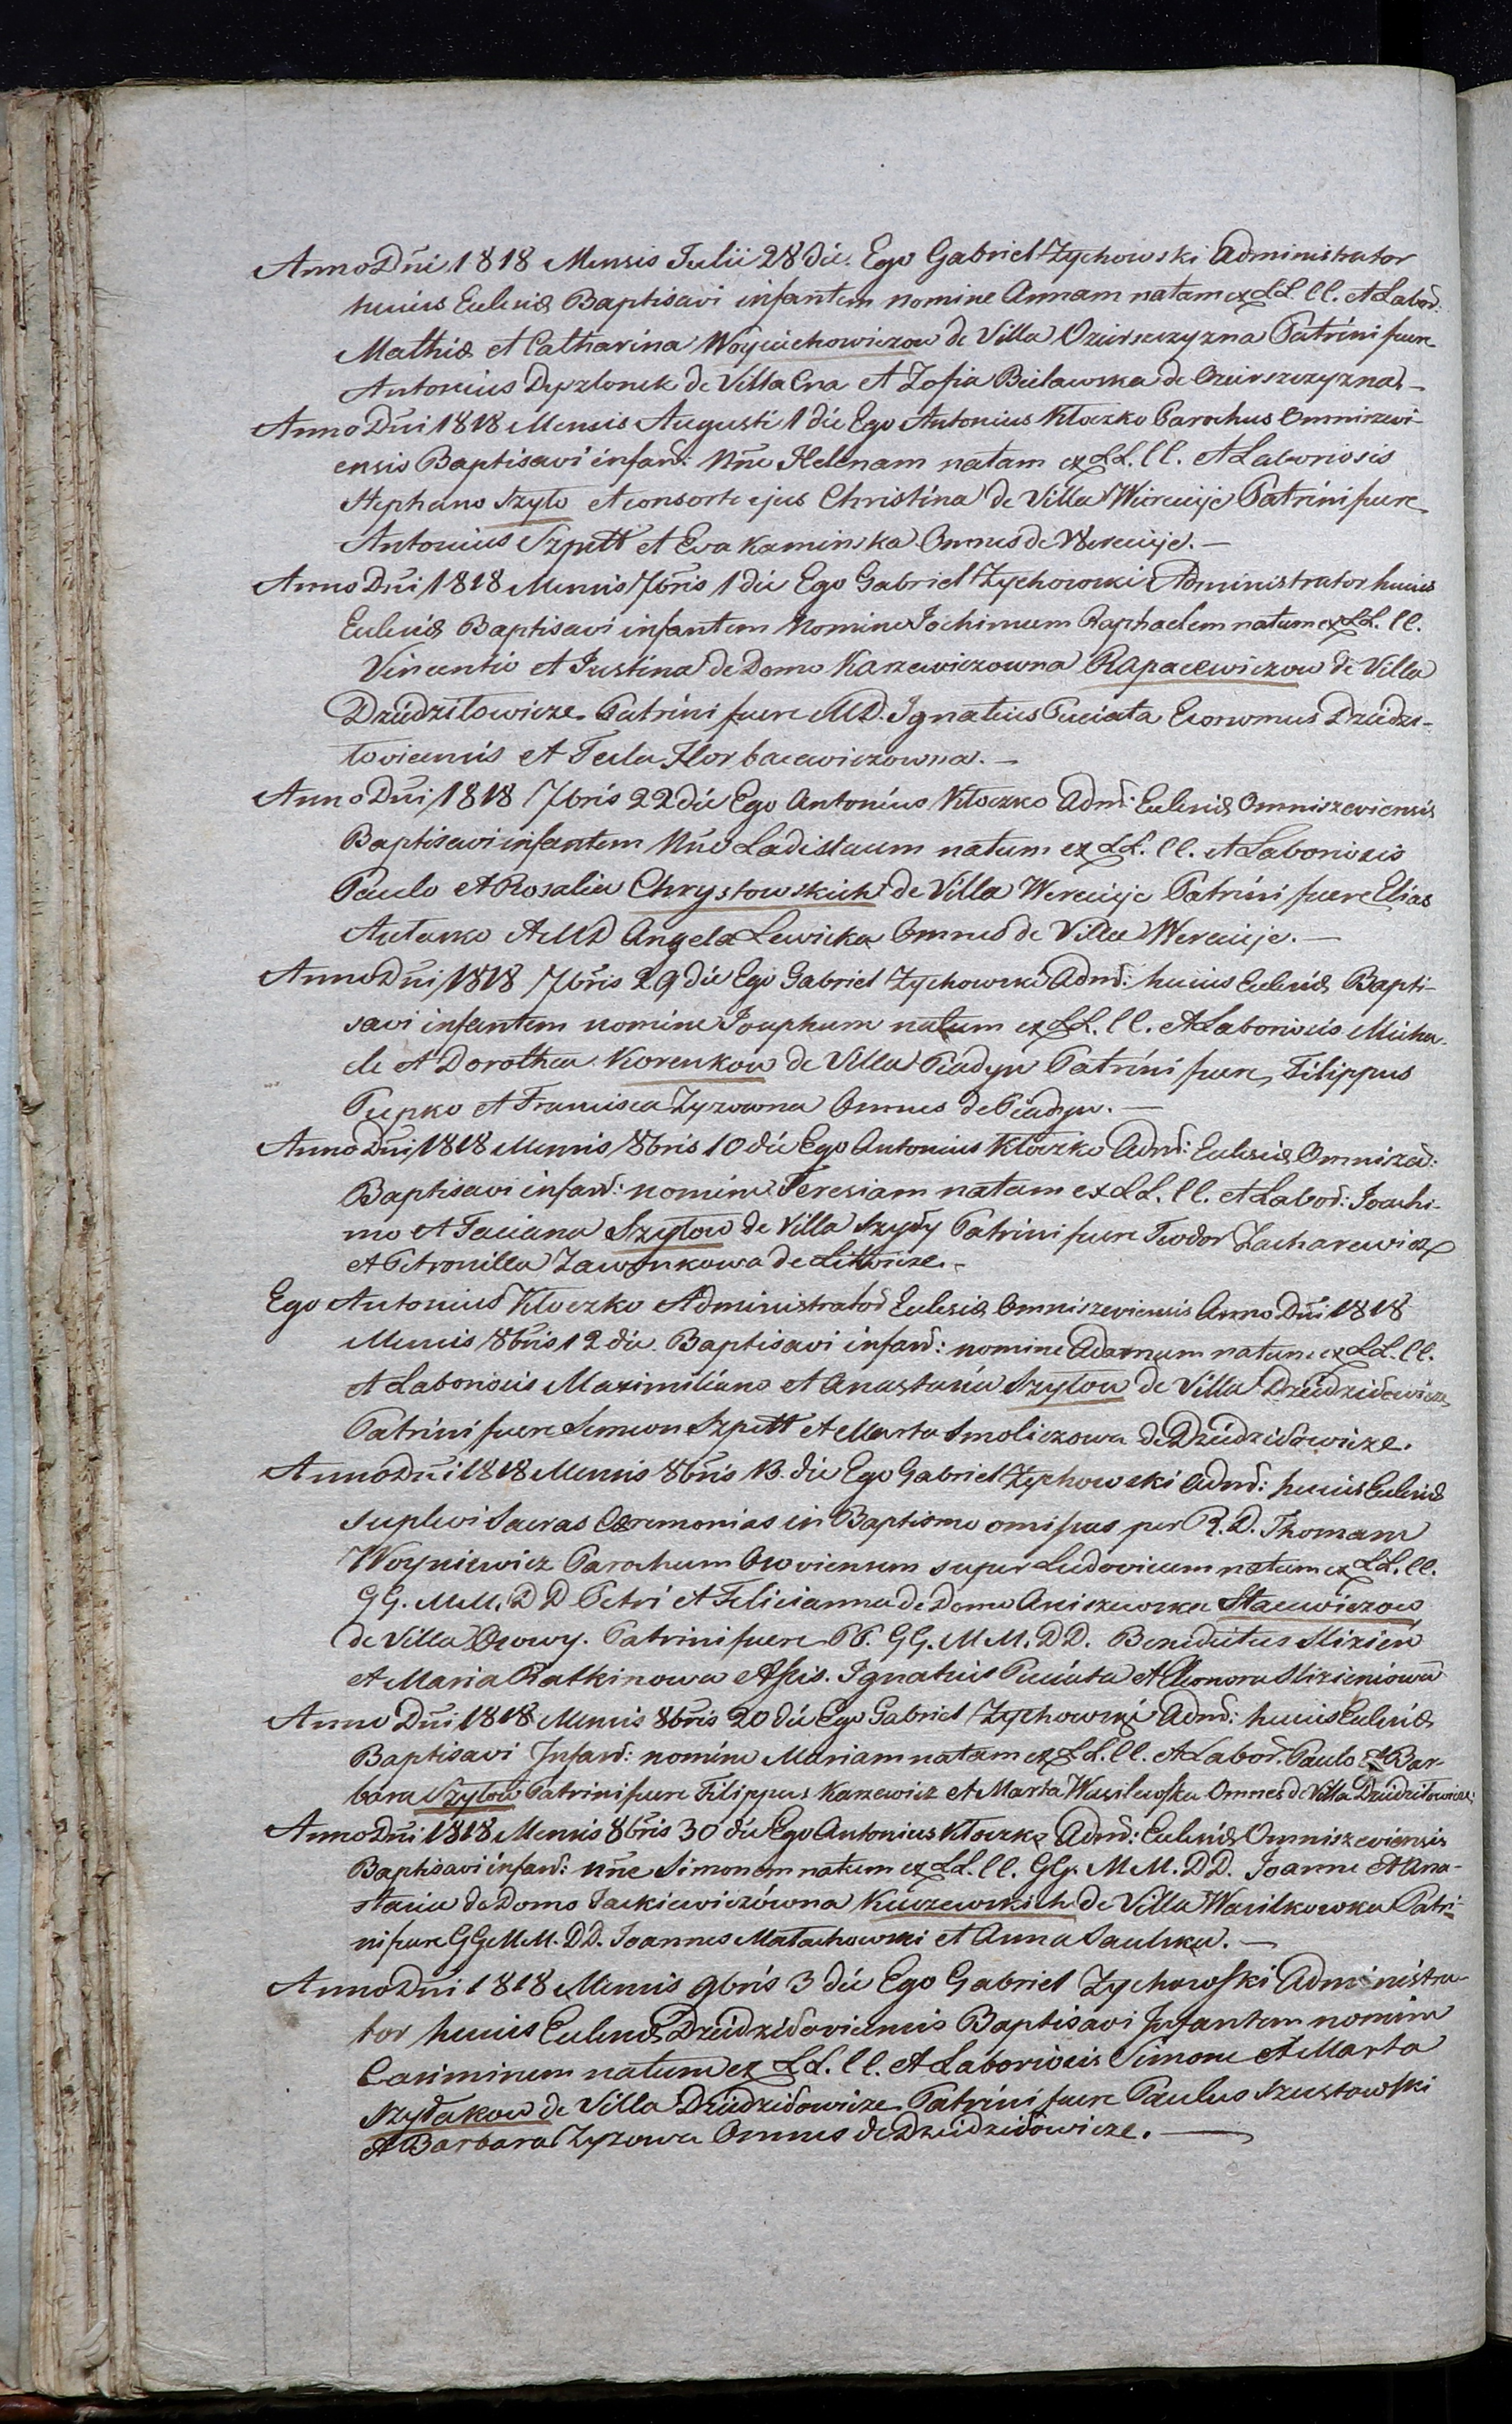 Anno Dñi 1818 Mensis Julii 28 die. Ego Gabriel Zychowski Administrator
huius Eclesiæ Baptisavi infantem nomine Annam natam ex LL. CC. et Labor:
Mathiæ et Catharina Woyciechowiczow de Villa Ozierszczyzna Patrini fuere
Antonius Dyzlonek de Villa Cna et Zofia Bielawska de Ozierszczyzna. –
Anno Dñi 1818 Mensis Augusti 1 die Ego Antonius Kłoczko Parochus Omniszewi-
ensis Baptisavi infan: Nñe Helenam natam ex LL. CC. et Laboriosis
Stephano Szyło et consorte ejus Christina de Villa Wierecieje Patrini fuere
Antonius Szpett et Eva Kaminska Omnes de Werecieje. –
Anno Dñi 1818 Mensis 7bris 1 die Ego Gabriel Zychowski Administrator huius
Eclesiæ Baptisavi infantem Nomine Jochimum Raphaelem natum ex LL. CC.
Vincentio et Justina de Domo Karzewiczowna Rapacewiczow de Villa
Dziedziłowicze. Patrini fuere MD. Ignatius Puciata Economus Dziedzi-
łoviensis et Tecla Horbacewiczowna. –
Anno Dñi 1818 7bris 22 die Ego Antonius Kłoczko Adm: Eclesiæ Omniszeviensis
Baptisavi infantem Nñe Ladislaum natum ex LL. CC. et Laboriosis
Paulo et Rosalia Chrystowskich de Villa Werecieje Patrini fuere Elias
Autuxo et MD Angela Lewicka Omnes de Villa Werecieje. –
Anno Dñi 1818 7bris 29 die Ego Gabriel Zychowski Adm: huius Eclesiæ Bapti-
savi infantem nomine Josephum natum ex LL. CC. et Laboriosis Micha-
ele et Dorothea Korenkow de Villa Piadyn Patrini fuere, Filippus
Pupko et Francisca Zyzowna Omnes de Piadyn. –
Anno Dñi 1818 Mensis 8bris 10 die Ego Antonius Kłoczko Adm: Eclesiæ Omniszew:
Baptisavi infan: nomine Teresiam natam ex LL. CC. et Labor: Joachi-
mo et Taciana Szyłow de Villa Szyły Patrini fuere Teodor Zacharewicz
et Petronilla Zawonkowa de Litwicze. –
Ego Antonius Kłoczko Administrator Eclesiæ Omniszeviensis Anno Dñi 1818
Mensis 8bris 12 die. Baptisavi infan: nomine Adamum natum ex LL. CC.
et Laboriosis Maximiliano et Anastasia Szyłow de Villa Dziedziłowicze
Patrini fuere Semeon Szpett et Marta Smoliczowa de Dziedziłowicze.
Anno Dñi 1818 Mensis 8bris 13. die Ego Gabriel Zychowski Adm: huius Eclesiæ
suplevi Sacras Cæremonias in Baptismo omissas per R. D. Thomam
Woyniewicz Parochum Osoviensem super Ludovicum natum ex LL. CC.
GG. MM. DD Petri et Felicianna de Domo Aniszewska Stacewiczow
de Villa Osowy. Patrini fuere PP. GG. MM. DD. Benedictus Slizien
et Maria Ratkinowa Assis. Ignatius Puciata et Eleonora Slizieniowa
Anno Dñi 1818 Mensis 8bris 20 die Ego Gabriel Zychowski Adm: huius Eclesiæ
Baptisavi Infan: nomine Mariam natam ex LL. CC. et Labor. Paulo et Bar-
bara Szyłow Patrini fuere Filippus Karzewicz et Marta Wasilewska Omnes de Villa Dziedziłowicze.
Anno Dñi 1818 Mensis 8bris 30 die Ego Antonius Kłoczko Adm: Eclesiæ Omniszeviensis
Baptisavi infan: nñe Simonem natum ex LL. CC. GG. MM. DD. Joanne et Ana-
stasia de Domo Jackiewiczówna Kuczewskich de Villa Wasilkowka Patri-
ni fuere GG MM. DD. Joannes Małachowski et Anna Saulska. –
Anno Dñi 1818 Mensis 9bris 3 die Ego Gabriel Zychowski Administra-
tor huius Eclesiæ Dziedziłoviensis Baptisavi Infantem nomine
Casimirum natum ex LL. CC. et Laboriosis Simone et Marta
Szyłakow de Villa Dziedziłowicze Patrini fuere Paulus Szustowski
et Barbara Zyzowa Omnes de Dziedziłowicze. –